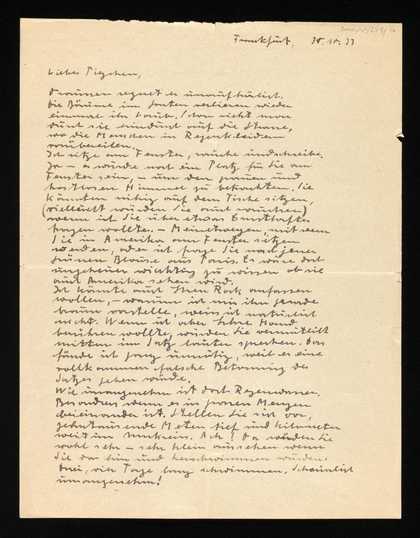 Frankfurt, 30.10.33
Liebes Pizchen,
Draussen regnet es unaufhörlich.
Die Bäume im Garten verlieren wieder
einmal ihr Laub. Schon sieht man
durch sie hindurch auf die Strasse,
wo die Menschen in Regenkleidern
vorübereilen.
Ich sitze am Fenster, rauche und schreibe.
Ja – es würde noch ein Platz für Sie am
Fenster sein, – um den grauen und
trostlosen Himmel zu betrachten. Sie
könnten ruhig auf dem Tische sitzen,
(vielleicht würden Sie auch rauchen)
wenn ich Sie über etwas Ernsthaftes
fragen wollte. – Meinetwegen, mit wem
Sie in Amerika am Fenster sitzen
werden, oder ich frage Sie nach jener
grünen Blouse aus Paris. Es wäre doch
ungeheuer wichtig zu wissen ob sie
auch Amerika sehen wird.
Ich könnte auch Ihren Rock anfassen
wollen, – warum ich mir ihn gerade
braun vorstelle, weiss ich natürlich
nicht. Wenn ich aber Ihre Hand
berühren wollte, würden Sie vermutlich
mitten im Satz lauter sprechen. Das
fände ich ganz unnötig, weil es eine
vollkommen falsche Betonung des
Satzes geben würde.
Wie unangenehm ist doch Regenwasser.
Besonders wenn es in grossen Mengen
beieinander ist. Stellen Sie sich vor,
zehntausende Meter tief und Kilometer
weit im Umkreis. Ach! Da würden Sie
wohl sehr – sehr klein aussehen wenn
Sie da hin und herschwimmen würden.
drei, vier Tage lang schwimmen. Scheusslich
unangenehm!